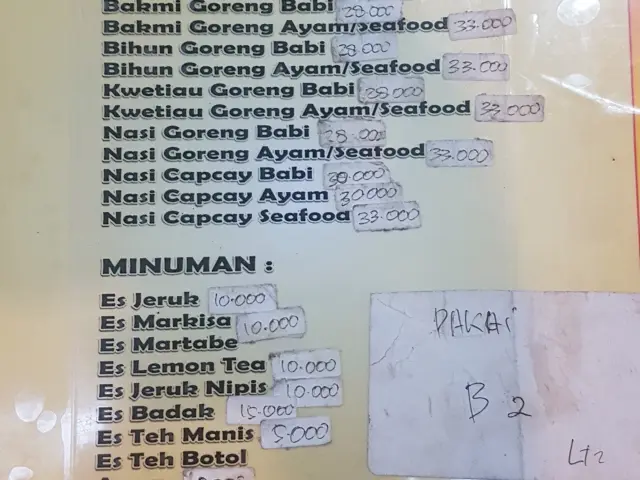 Bakmi Goreng Babi 28.000
Bakmi Goreng Ayam/Seafood 33.000
Bihun Goreng Babi 28.000
Bihun Goreng Ayam/Seafood 33.000
Kwetiau Goreng Babi 28.000
Kwetiau Goreng Ayam/Seafood 33.000
Nasi Goreng Babi 28.000
Nasi Goreng Ayam/Seafood 33.000
Nasi Capcay Babi 30.000
Nasi Capcay Ayam 30.000
Nasi Capcay Seafood 33.000
MINUMAN :
Es Jeruk 10.000
Es Markisa 10.000
Es Martabe
Es Lemon Tea 10.000
Es Jeruk Nipis 10.000
Es Badak 15.000
Es Teh Manis 5.000
Es Teh Botol
PAKAI
B 2
Lt 2